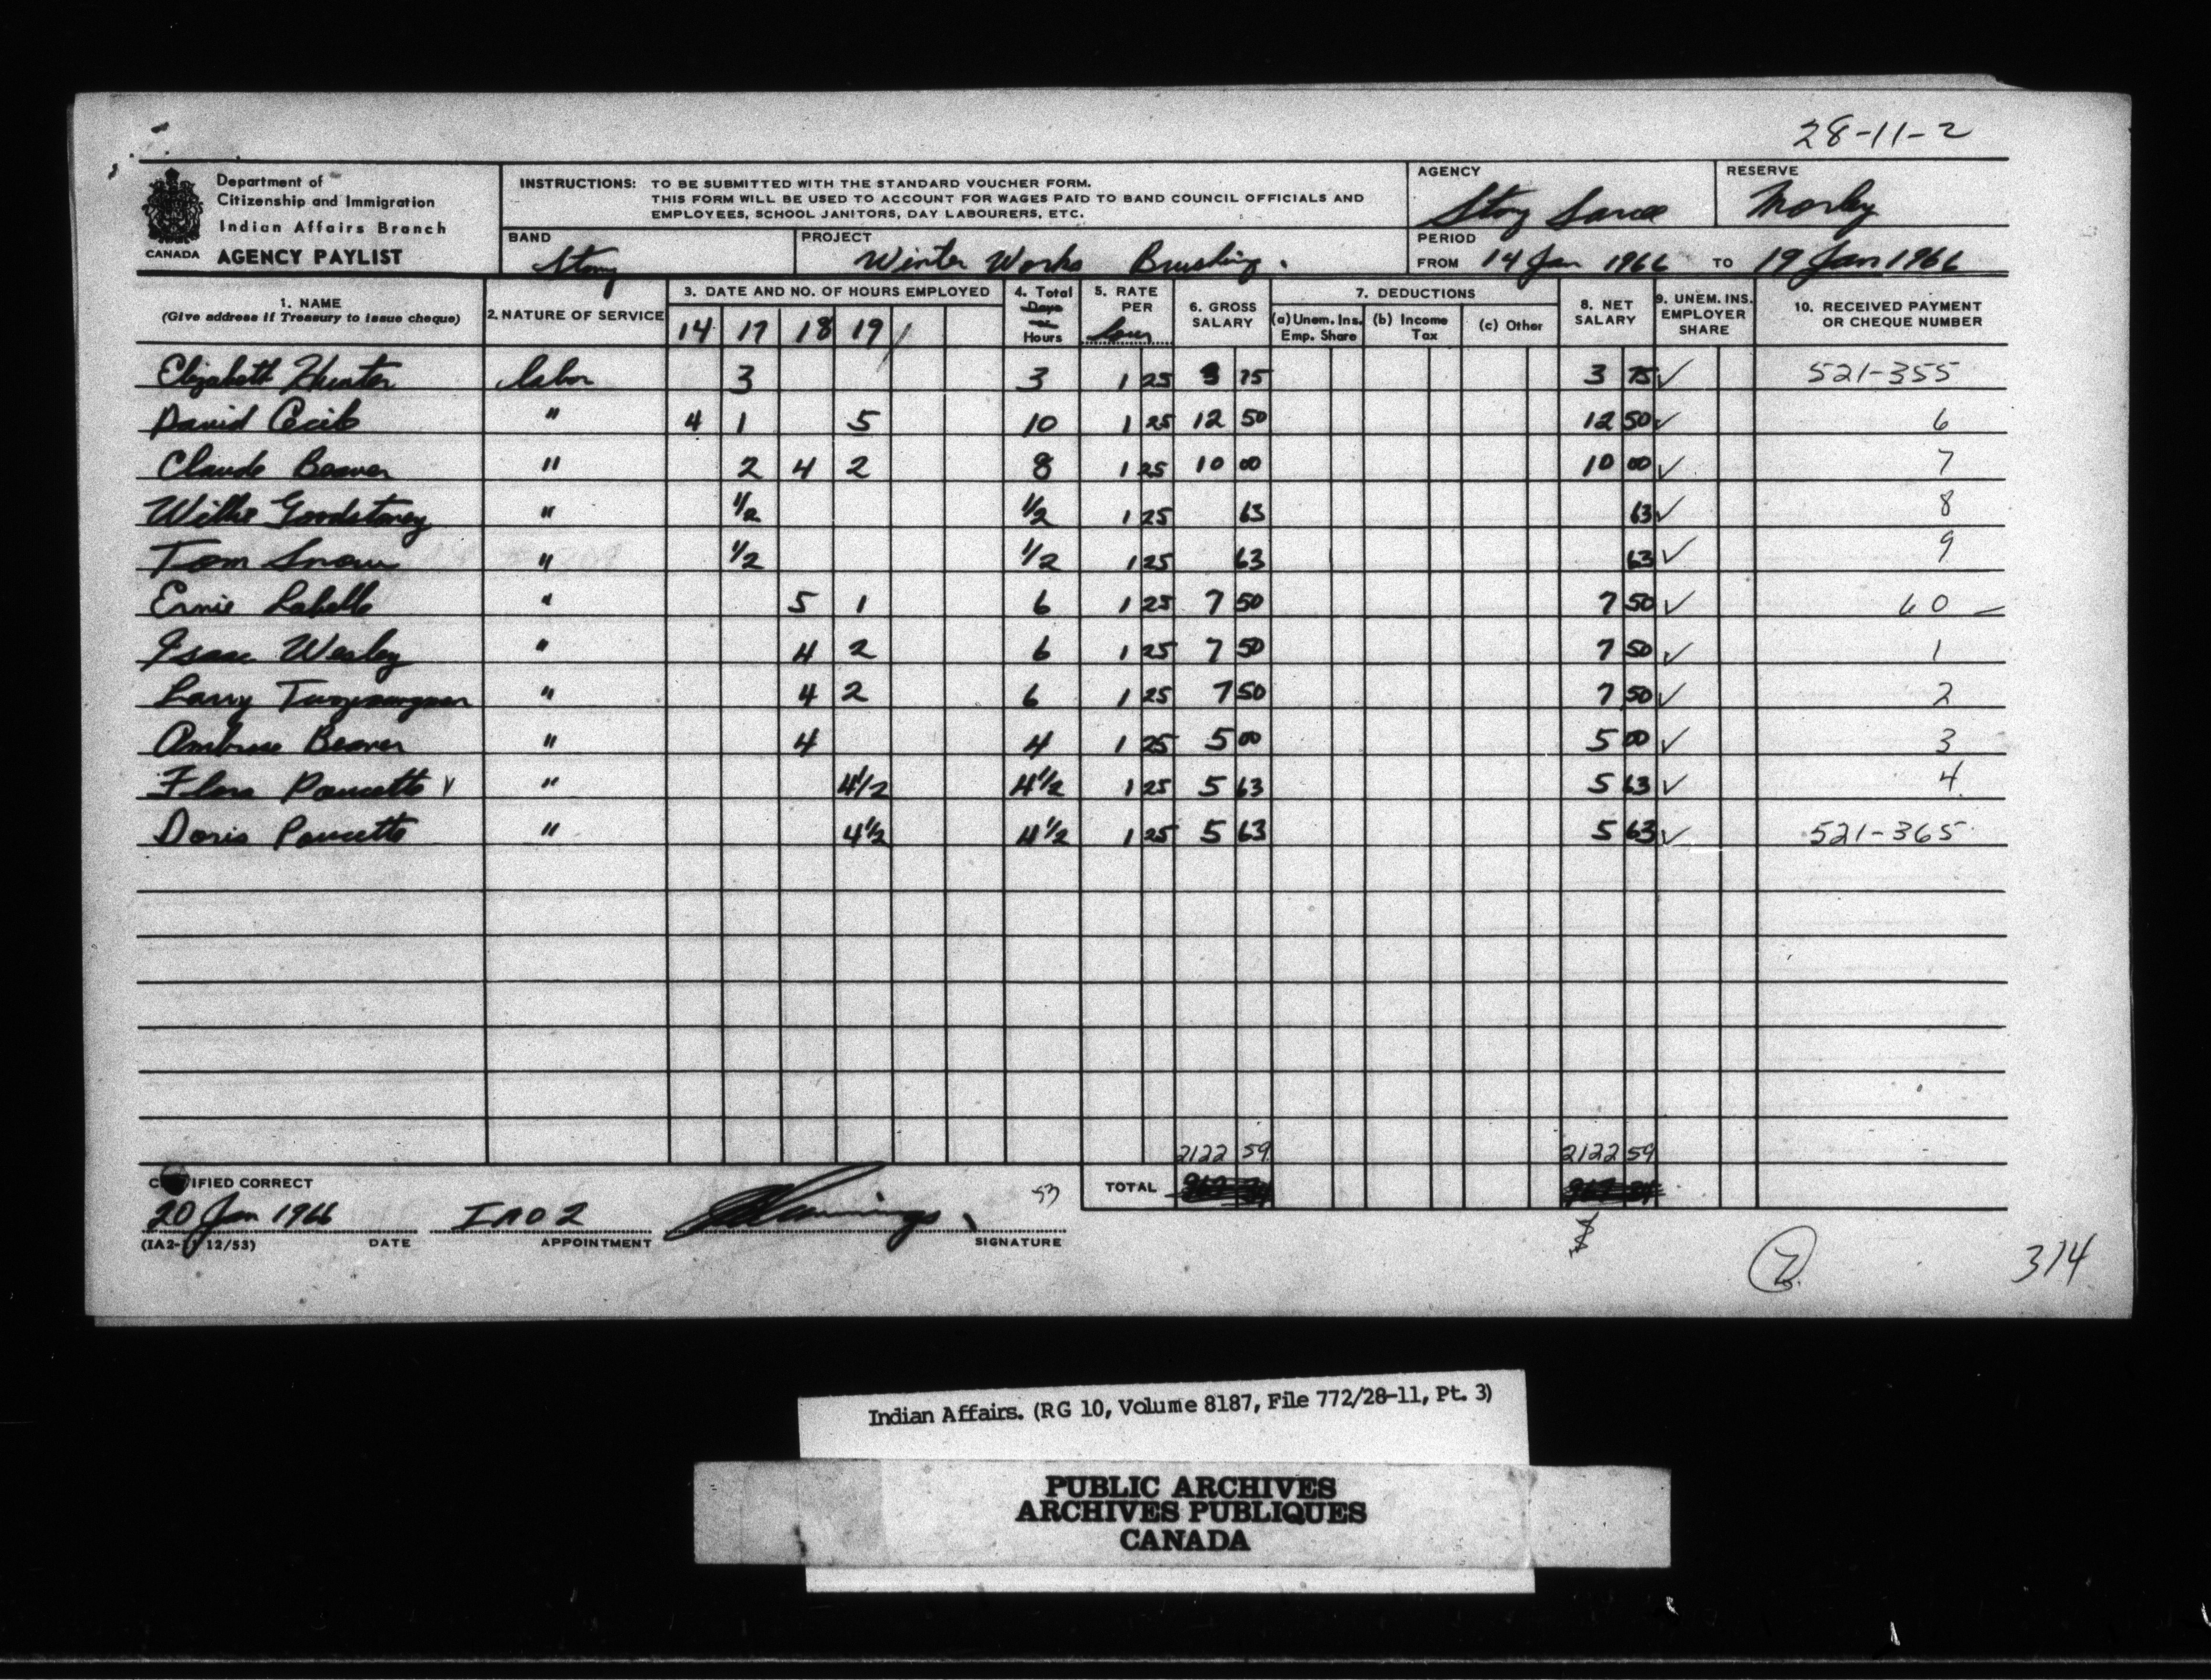 28-11-2
Department of
Citizenship and Immigration
Indian Affairs Branch
CANADA AGENCY PAYLIST
INSTRUCTIONS: TO BE SUBMITTED WITH THE STANDARD VOUCHER FORM.
THIS FORM WILL BE USED TO ACCOUNT FOR WAGES PAID TO BAND COUNCIL OFFICIALS AND
EMPLOYEES, SCHOOL JANITORS, DAY LABOURERS, ETC.
AGENCY Stony Sarcee
RESERVE Morley
BAND Stony
PROJECT Winter Works Brushing.
PERIOD
FROM 14 Jan 1966 TO 19 Jan 1966
1. NAME
(Give address if Treasury to issue cheque)
2. NATURE OF SERVICE
3. DATE AND NO. OF HOURS EMPLOYED
14 17 18 19
4. Total
Days
or
Hours
5. RATE
PER
hour
6. GROSS
SALARY
7. DEDUCTIONS
(a) Unem. Ins. Emp. Share
(b) Income Tax
(c) Other
8. NET
SALARY
9. UNEM. INS.
EMPLOYER
SHARE
10. RECEIVED PAYMENT
OR CHEQUE NUMBER
Elizabeth Hunter labor 3 3 1 25 3 75 3 75 ✓ 521-355
David Cecil " 4 1 5 10 1 25 12 50 12 50 ✓ 6
Claude Beaver " 2 4 2 8 1 25 10 00 10 00 ✓ 7
Willie Goodstoney " 1/2 1/2 1 25 63 63 ✓ 8
Tom Snow " 1/2 1/2 1 25 63 63 ✓ 9
Ernie Labelle " 5 1 6 1 25 7 50 7 50 ✓ 60
Isaac Wesley " 4 2 6 1 25 7 50 7 50 ✓ 1
Larry Twoyoungmen " 4 2 6 1 25 7 50 7 50 ✓ 2
Ambrose Beaver " 4 4 1 25 5 00 5 00 ✓ 3
Flora Poucette ✓ " 4 1/2 4 1/2 1 25 5 63 5 63 ✓ 4
Doris Poucette " 4 1/2 4 1/2 1 25 5 63 5 63 ✓ 521-365
2122 59 2122 59
TOTAL
CERTIFIED CORRECT
20 Jan 1966 IAO 2 53
(IA2-11 12/53) DATE APPOINTMENT SIGNATURE
$
2.
314
Indian Affairs. (RG 10, Volume 8187, File 772/28-11, Pt. 3)
PUBLIC ARCHIVES
ARCHIVES PUBLIQUES
CANADA